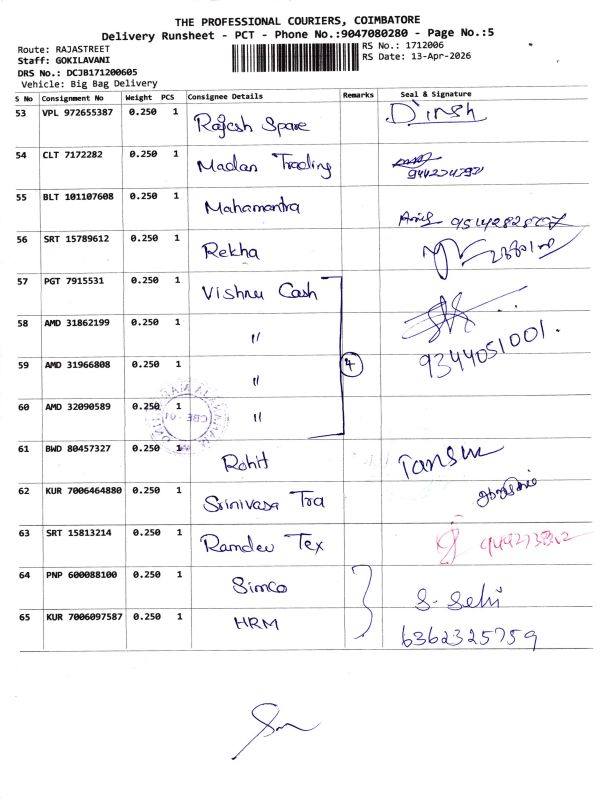 THE PROFESSIONAL COURIERS, COIMBATORE
Delivery Runsheet - PCT - Phone No.:9047080280 - Page No.:5
Route: RAJASTREET
RS No.: 1712006
Staff: GOKILAVANI
RS Date: 13-Apr-2026
DRS No.: DCJB171200605
Vehicle: Big Bag Delivery
S No Consignment No Weight PCS Consignee Details Remarks Seal & Signature
53 VPL 972655387 0.250 1 Rajesh Spare Dinsh
54 CLT 7172282 0.250 1 Madan Trading
55 BLT 101107608 0.250 1 Mahamantra
56 SRT 15789612 0.250 1 Rekha
57 PGT 7915531 0.250 1 Vishnu Cash
58 AMD 31862199 0.250 1 "
9344051001.
59 AMD 31966808 0.250 1 " 4
60 AMD 32090589 0.250 1 "
61 BWD 80457327 0.250 1 Rohit
62 KUR 7006464880 0.250 1 Srinivasa Tra
63 SRT 15813214 0.250 1 Ramdev Tex
64 PNP 600088100 0.250 1 Simco S. Selvi
65 KUR 7006097587 0.250 1 HRM 6362325759